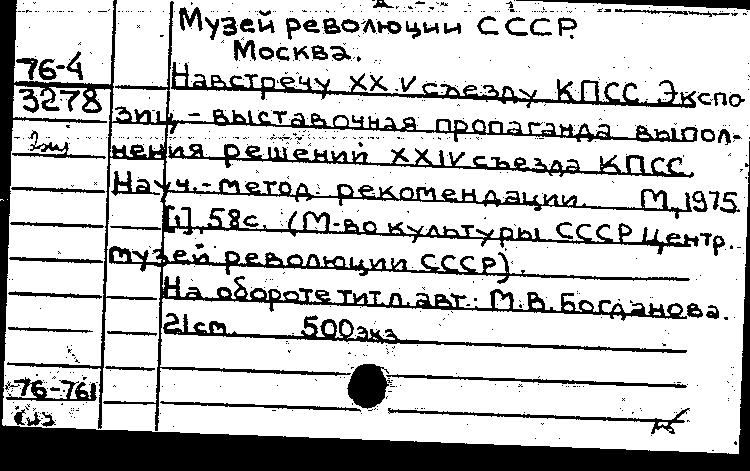 Музей революции СССР.
Москва.
76-4
3278
Навстречу XXV съезду КПСС. Экспо
зиц.-выставочная пропаганда выпол-
нения решений XXIV съезда КПСС.
Науч.-метод. рекомендации. М., 1975.
[1], 58с. (М-во культуры СССР Центр.
музей революции СССР).
На обороте тит.л. авт.: М.В. Богданова.
21см. 500экз.
76-761